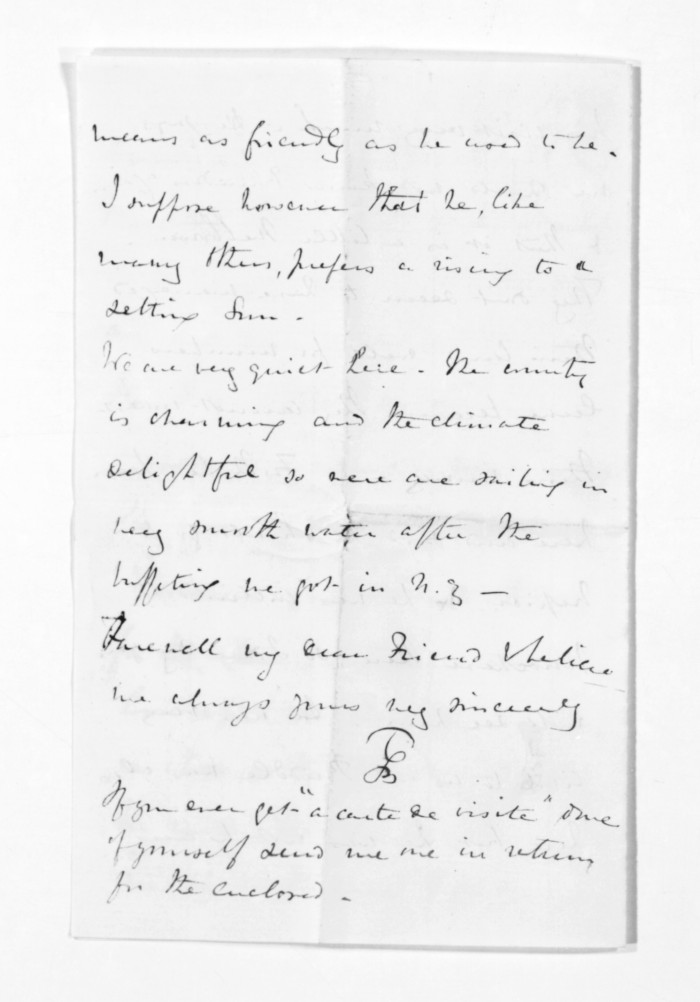 means as friendly as he used to be.
I suppose however that he, like
many others, prefers a rising to a
setting Sun -
We are very quiet here - The country
is charming and the climate
delightful so we are sailing in
very smooth water after the
buffeting we got in N.Z -
Farewell my dear Friend & believe
me always yours very sincerely
If you ever get "a carte de visite" done
of yourself send me one in return
for the enclosed -